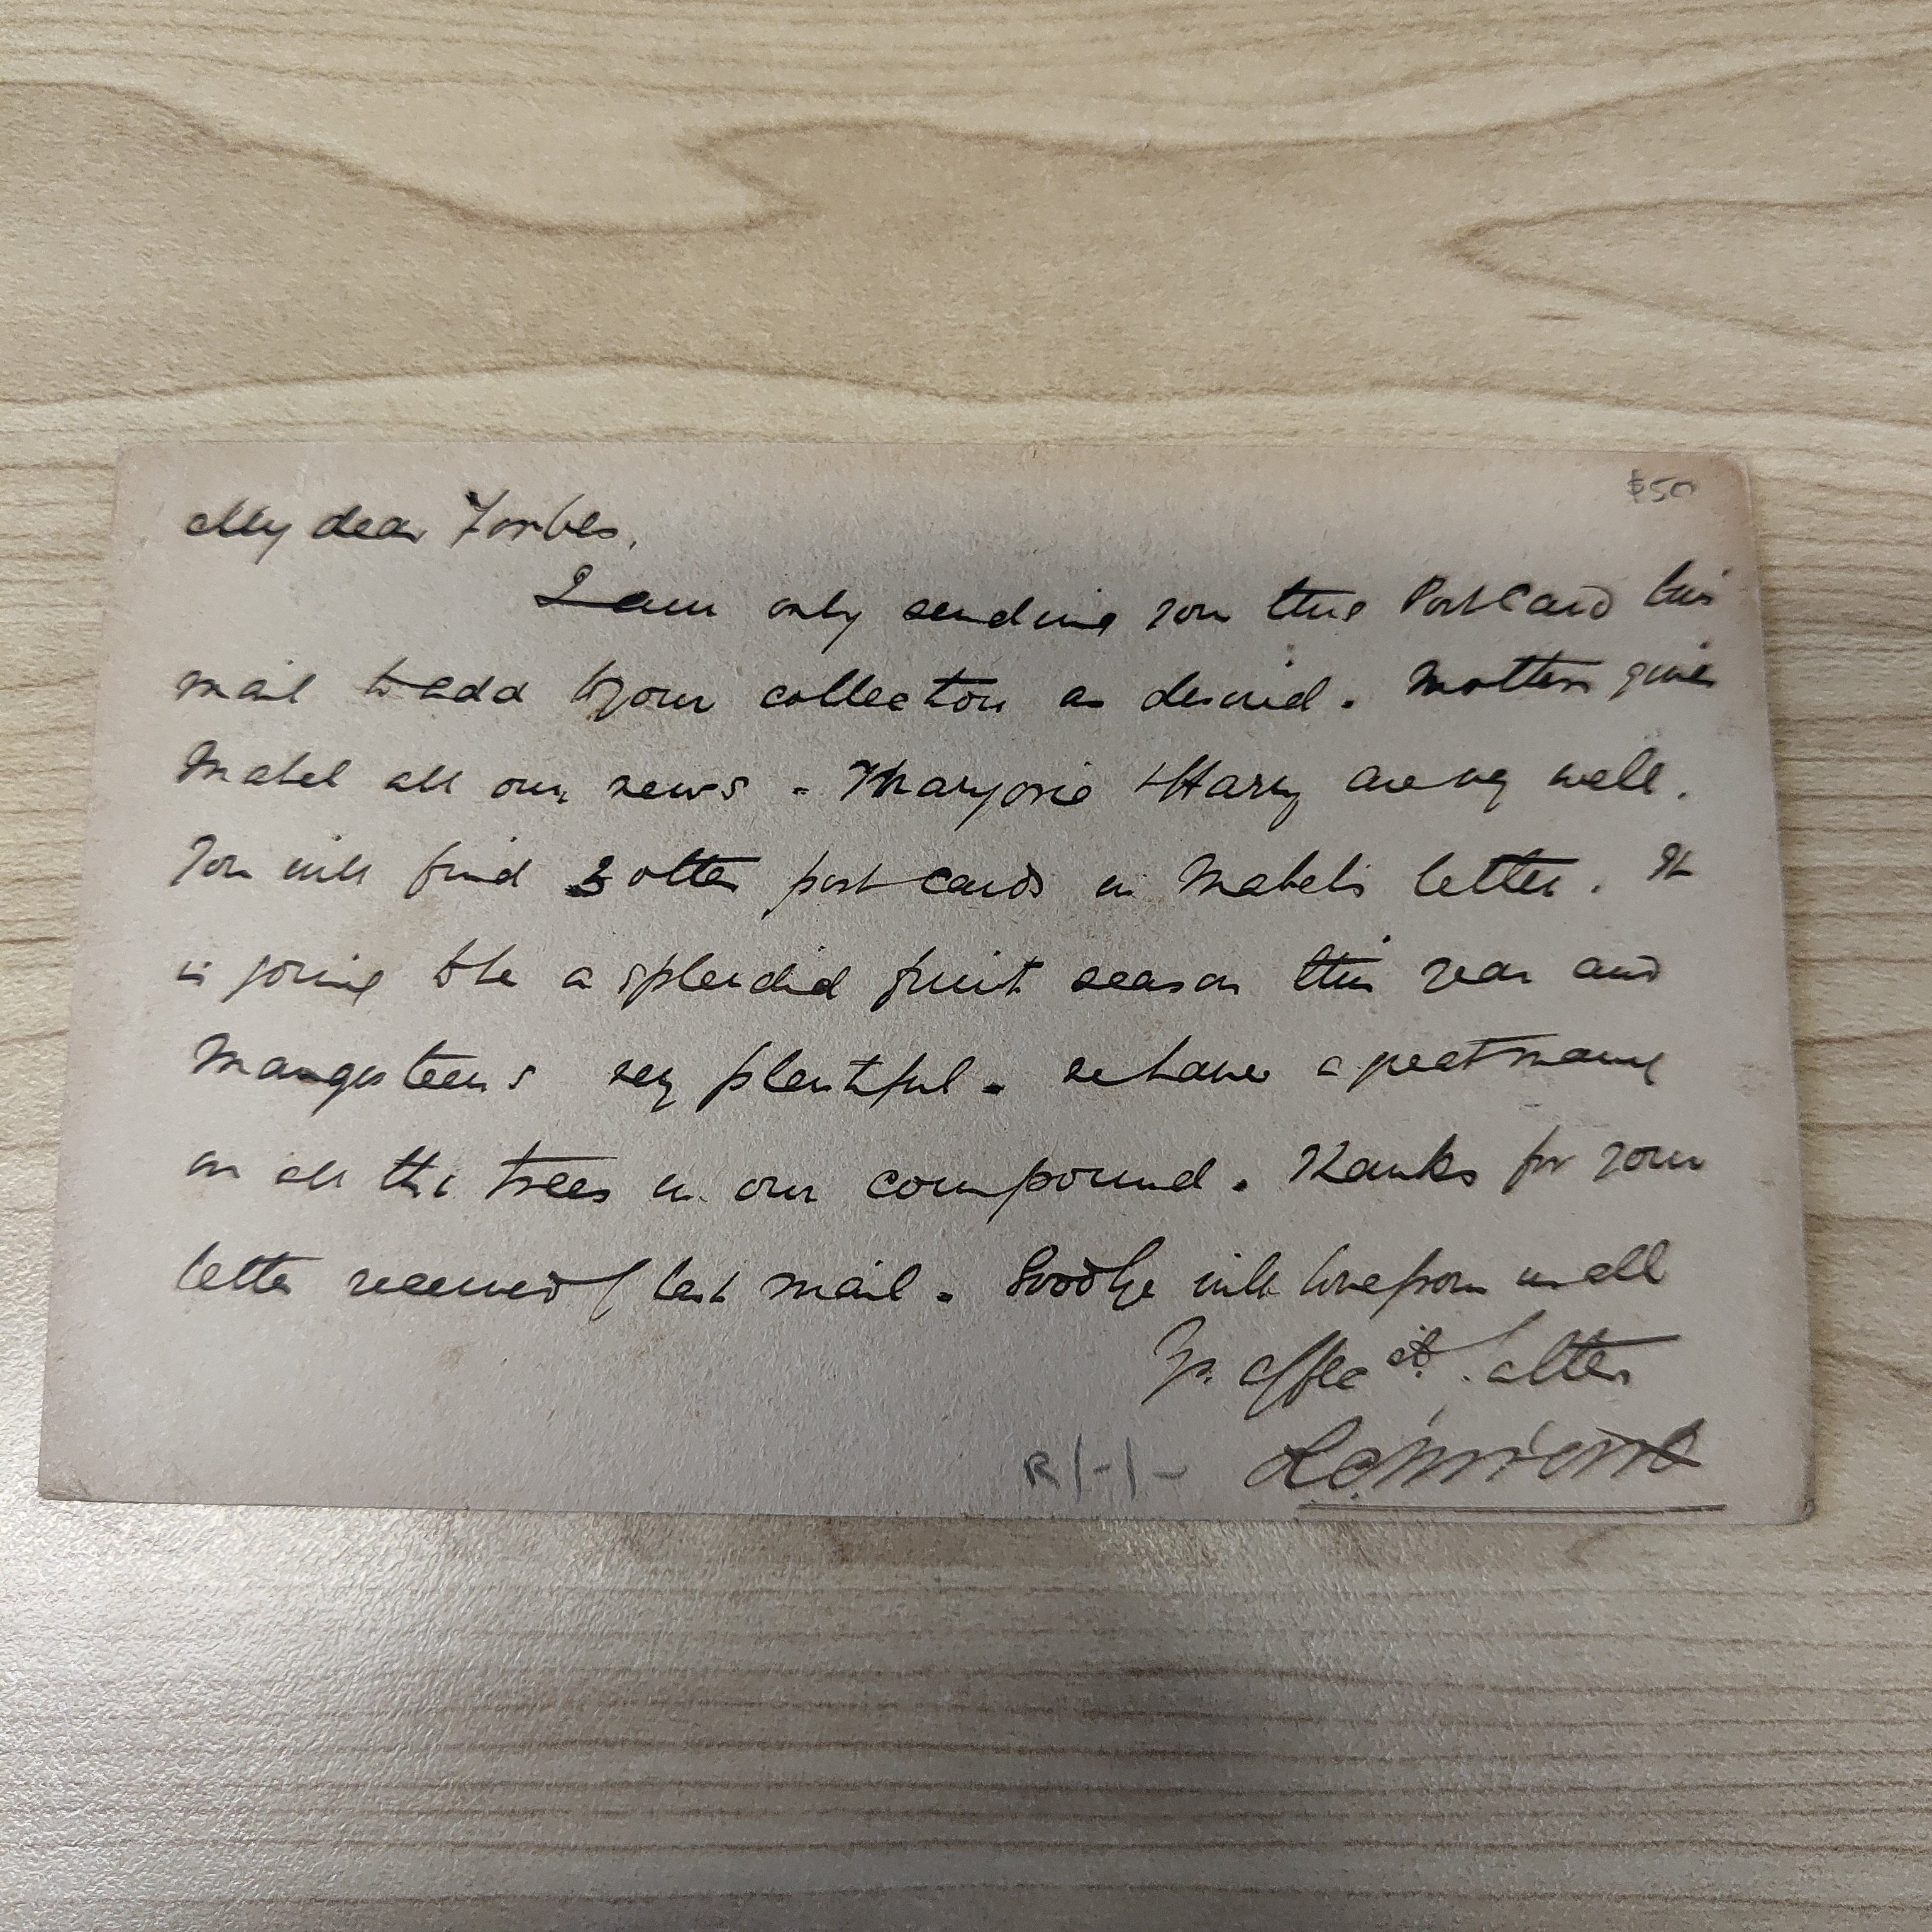 $50
My dear Forbes,
I am only sending you this Post Card this
mail to add to your collection as desired. Mother gives
Mabel all our news - Marjorie & Harry are vy well.
You will find 3 other post cards in Mabel's letter. It
is going to be a splendid fruit season this year and
Mangosteens very plentiful. We have a great many
on all the trees in our compound. Thanks for your
letter received last mail. Goodbye with love from us all
Yr. affect. father
R/-/-